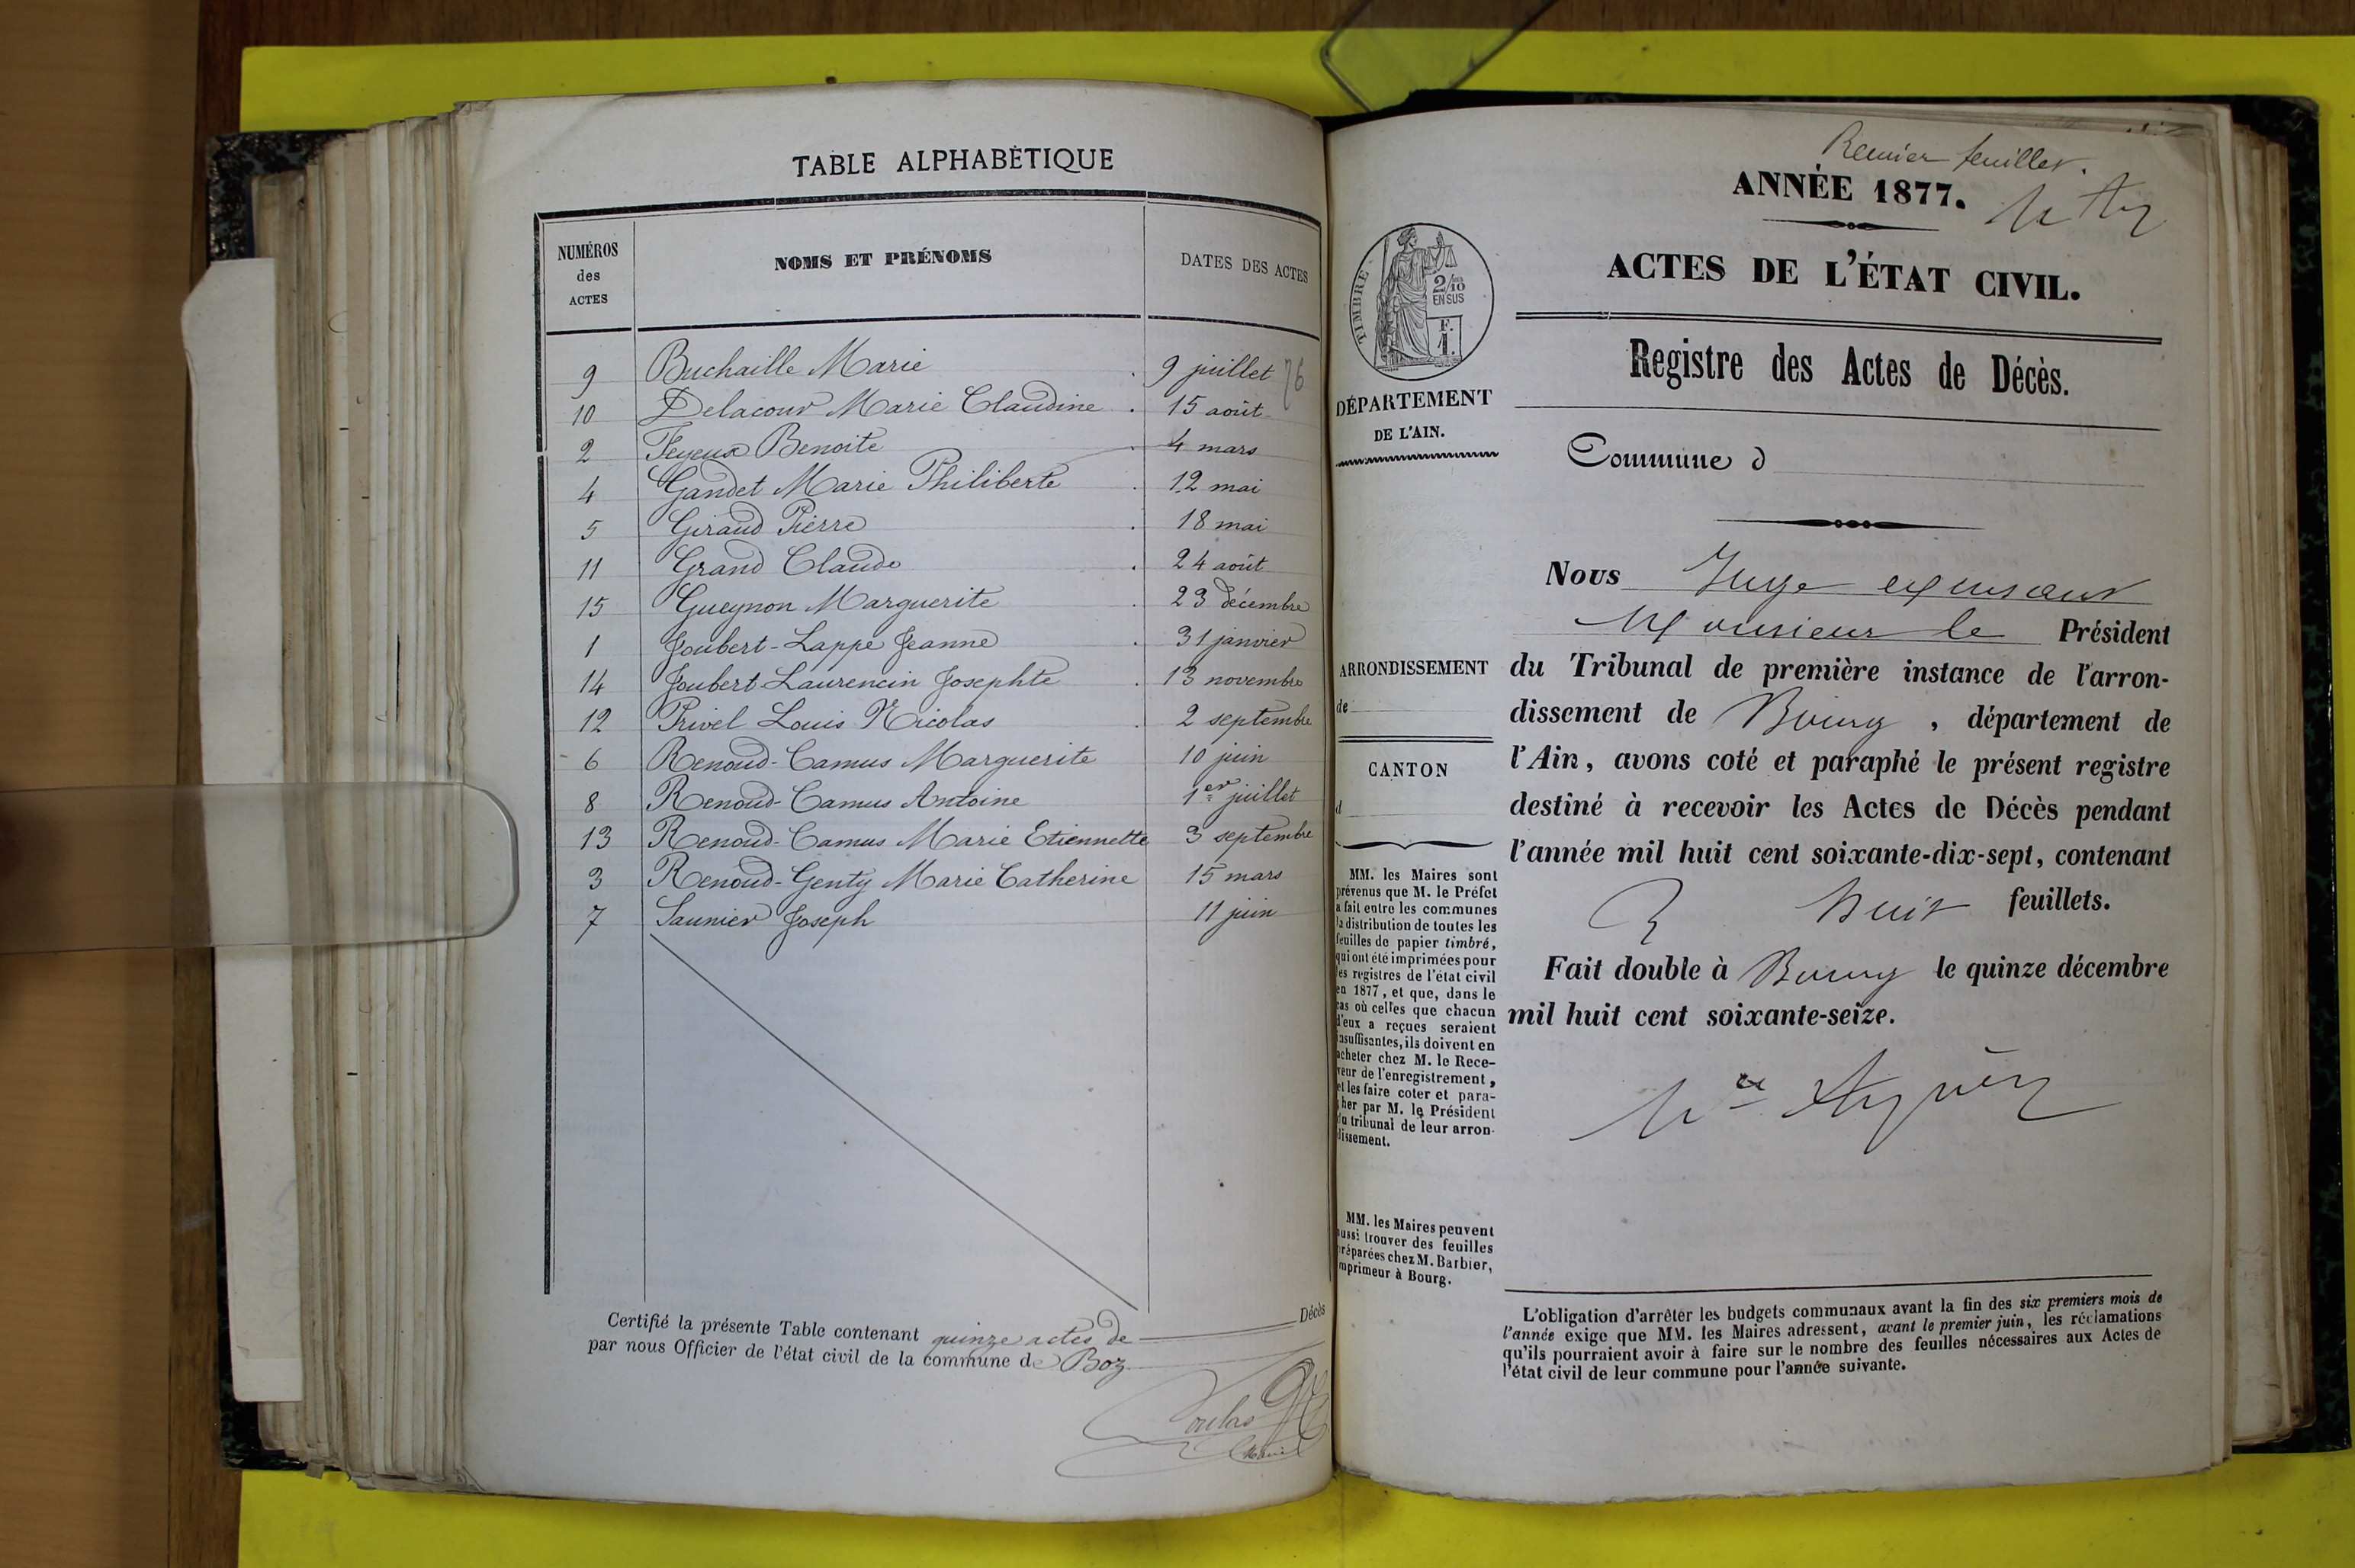 TABLE ALPHABÉTIQUE
NUMÉROS des ACTES
NOMS ET PRÉNOMS
DATES DES ACTES
9 Buchaille Marie 9 juillet 76
10 Delacour Marie Claudine 15 août
2 Feyeux Benoite 4 mars
4 Gandet Marie Philiberte 12 mai
5 Giraud Pierre 18 mai
11 Grand Claude 24 août
15 Gueynon Marguerite 23 décembre
1 Joubert-Lappe Jeanne 31 janvier
14 Joubert-Laurencin Josephte 13 novembre
12 Privel Louis Nicolas 2 septembre
6 Renoud-Camus Marguerite 10 juin
8 Renoud-Camus Antoine 1er juillet
13 Renoud-Camus Marie Etiennette 3 septembre
3 Renoud-Genty Marie Catherine 15 mars
7 Saunier Joseph 11 juin
Certifié la présente Table contenant quinze actes de Décès
par nous Officier de l'état civil de la commune de Boz
Premier feuillet.
ANNÉE 1877.
ACTES DE L'ÉTAT CIVIL.
Registre des Actes de Décès.
Commune d
TIMBRE
2/10
EN SUS
F.
1.
DÉPARTEMENT
DE L'AIN.
ARRONDISSEMENT
de
CANTON
d
MM. les Maires sont
prévenus que M. le Préfet
a fait entre les communes
la distribution de toutes les
feuilles de papier timbré,
qui ont été imprimées pour
les registres de l'état civil
en 1877, et que, dans le
cas où celles que chacun
d'eux a reçues seraient
insuffisantes, ils doivent en
acheter chez M. le Rece-
veur de l'enregistrement,
et les faire coter et para-
pher par M. le Président
du tribunal de leur arron-
dissement.
MM. les Maires peuvent
aussi trouver des feuilles
préparées chez M. Barbier,
imprimeur à Bourg.
Nous Juge
Monsieur le Président
du Tribunal de première instance de l'arron-
dissement de Bourg, département de
l'Ain, avons coté et paraphé le présent registre
destiné à recevoir les Actes de Décès pendant
l'année mil huit cent soixante-dix-sept, contenant
huit feuillets.
Fait double à Bourg le quinze décembre
mil huit cent soixante-seize.
L'obligation d'arrêter les budgets communaux avant la fin des six premiers mois de
l'année exige que MM. les Maires adressent, avant le premier juin, les réclamations
qu'ils pourraient avoir à faire sur le nombre des feuilles nécessaires aux Actes de
l'état civil de leur commune pour l'année suivante.